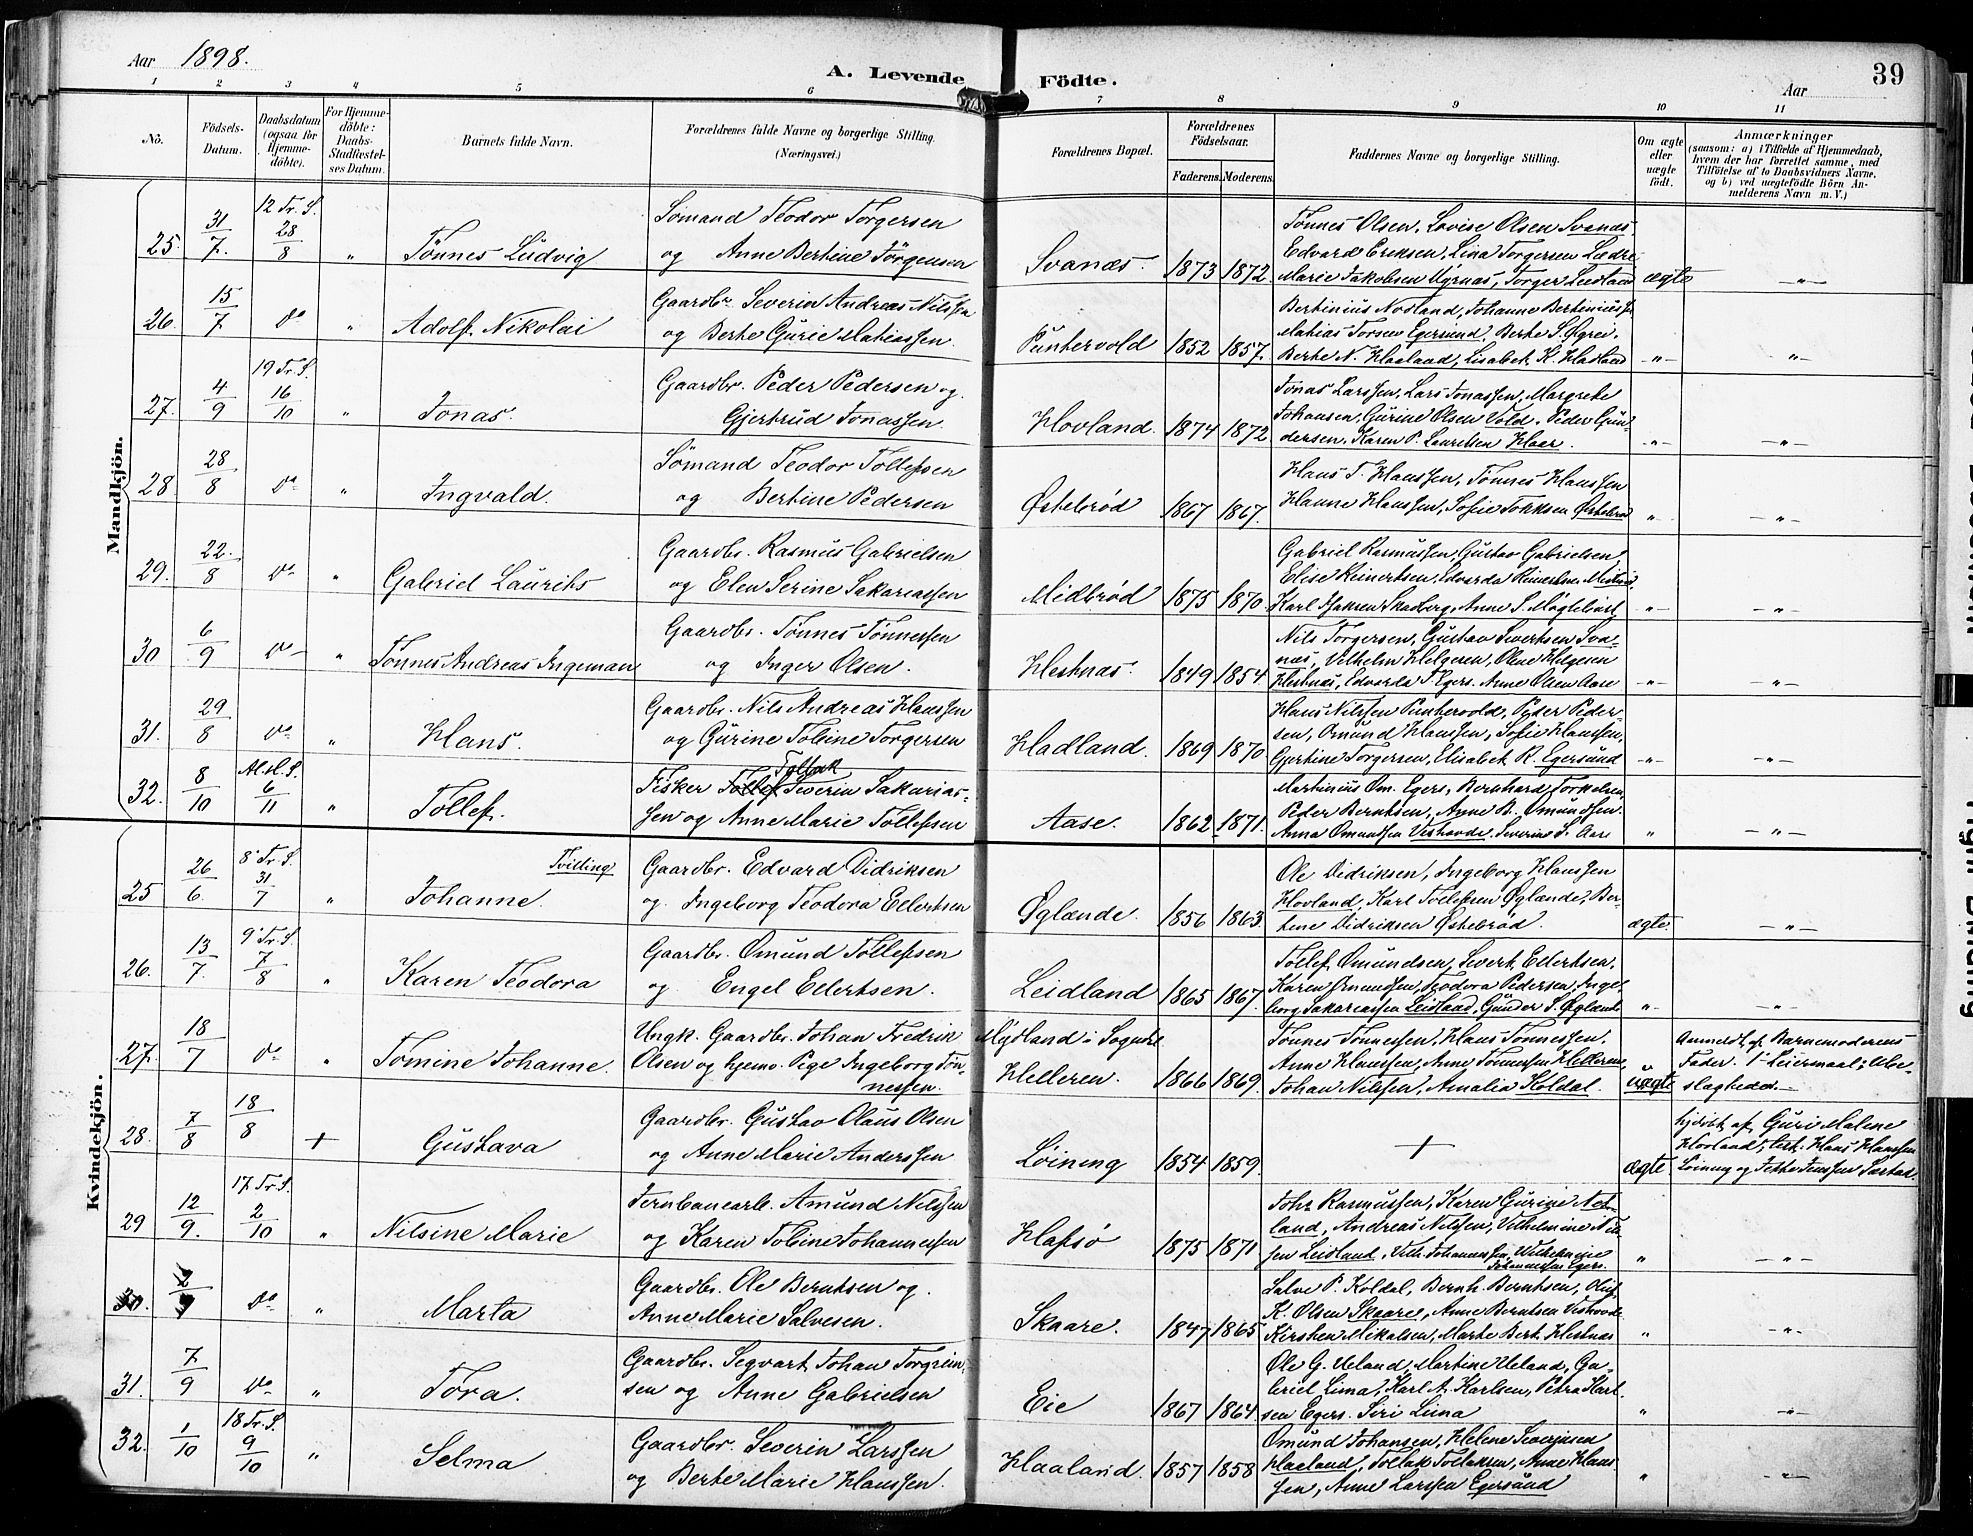 Aar 1898.
A. Levende Födte.
Aar
39
1 2 3 4 5 6 7 8 9 10 11
No.
Födsels-Datum.
Daabsdatum (ogsaa for Hjemme-döbte).
For Hjemme-döbte: Daabs-Stadfæstel-ses Datum.
Barnets fulde Navn.
Forældrenes fulde Navne og borgerlige Stilling. (Næringsvei.)
Forældrenes Bopæl.
Forældrenes Födselsaar.
Faderens. Moderens.
Faddernes Navne og borgerlige Stilling.
Om ægte eller uægte födt.
Anmærkninger
(saasom: a) i Tilfælde af Hjemmedaab, hvem der har forrettet samme, med Tilföielse af to Daabsvidners Navne. og b) ved uægtefödte Börn An-melderens Navn m. V.)
Mandkjön.
25. 31/7. 12 Tr. S. 28/8 " Tønnes Ludvig
Sömand Teodor Torgersen
og Anne Bertine Jörgensen
Svanæs. 1873 1872.
Tønnes Olsen, Lovise Olsen Svanæs
Edvard Eriksen, Lina Torgersen
Marie Jakobsen, Torger Leidland
ægte -"-
26. 15/7. Do " Adolf Nikolai
Gaardbr. Severin Andreas Nilssen
og Berte Gurie Matiassen.
Puntervold 1852 1857.
Bertinius Nodland, Johanne
Matias Torsen Egersund, Berte S. Øgrei.
Berte N. Haaland, Lisabet K. Hadland
-"- -"-
27. 4/9 19 Tr. S. 16/10 " Jonas.
Gaardbr. Peder Pedersen og
Gjertrud Jonassen
Hovland. 1874 1872
Jonas Larssen, Lars Jonassen, Margrete
Johansen, Gurine Olsen Vold. Peder Gun-
dersen. Karen P. Lauritsen
-"- -"-
28 28/8 Do " Ingvald.
Sömand Teodor Tollefsen
og Bertine Pedersen
Østebrød 1867 1867.
Hans T. Hanssen, Tønnes Hanssen
Hanne Hanssen, Sofie Østebrød
" -"-
29. 22/8 Do " Gabriel Laurits
Gaardbr. Rasmus Gabrielsen
og Elen Serine Sakariassen
Midbrød 1875 1870.
Gabriel Rasmussen, Gustav Gabrielsen
Elise Reinertsen, Edvarda Reinertsen
Karl Isaksen Skadberg, Anne S.
-"- -"-
30 6/9 Do " Tønnes Andreas Ingeman
Gaardbr. Tønnes Tønnessen
og Inger Olsen.
Hestnæs. 1849 1854
Nils Torgersen, Gustav Sivertsen Sva-
næs, Vilhelm Helgesen, Olene Helgesen
Hestnæs, Edvarda T. Egers. Anne Olsen Aase
-"- -"-
31. 29/8 Do " Hans.
Gaardbr. Nils Andreas Hanssen
og Gurine Tobine Torgersen
Hadland. 1869 1870
Hans Nilssen Puntervold, Peder Peder-
sen, Omund Hanssen, Sofie Hanssen,
Gjertine Torgersen, Elisabet R. Egersund
-"- -"-
32. 8/10 Al.H. S. 6/11 " Tollef.
Tollak
Fisker Tollef Severin Sakarias-
sen og Anne Marie Tollefsen
Aase. 1862 1871.
Martinius Om. Egers, Bernhard Torkelsen,
Peder Berntsen, Anne B. Omundsen.
Anna Omundsen Veshovde. Severine S. Aase
" -"-
Kvindekjön.
25 26/6. 8' Tr. S. 31/7 " Johanne. Tvilling
Gaardbr. Edvard Didriksen
og Ingeborg Teodora Ellertsen
Øglænde. 1856 1863.
Ole Didriksen, Ingeborg Hanssen
Hovland, Karl Tollefsen Øglænde, Ber-
tine Didriksen Østebrød
ægte. -"-
26. 13/7. 9' Tr. S. 7/8 " Karen Teodora
Gaardbr. Omund Tollefsen
og Engel Ellertsen.
Leidland 1865 1867.
Tollef Omundsen, Sivert Ellertsen.
Karen Omundsen, Teodora Pedersen, Inge-
borg Sakariassen Leidland, Gunder S. Øglænde
" -"-
27. 18/7 Do " Tomine Johanne.
Ungk. Gaardbr. Johan Fredrik
Olsen og hjemv. Pige Ingeborg Tön-
nessen.
Mydland i Sogndal
Helleren. 1866 1869.
Tønnes Tönnessen, Hans Tönnessen.
Anne Hanssen, Anne Tönnessen Helleren
Johan Nilssen, Amalia Koldal.
uægte
Anmeldt af Barnemoderens
Fader. 1' Leiermaal;
28. 7/8 18/8 + Gustava
Gaardbr. Gustav Olaus Olsen
og Anne Marie Anderssen
Løining 1854 1859.
+
ægte
hjdöbt af Guri Malene
Hovland, test: Hans Hanssen
Løining og
29 12/9. 17. Tr. S. 2/10 " Nilsine Marie
Jernbanearb. Amund Nilssen
og Karen Tobine Johannessen
Hafsö 1875 1871
Johs Rasmussen, Karen Gurine Net-
land, Andreas Nilssen, Vilhelmine Nil-
sen Leidland. Vilh. Johannessen, Wilhelmine
Johannessen Egers.
" "
30. 2/9 Do " Marta
Gaardbr. Ole Berntsen og
Anne Marie Salvesen.
Skaare. 1847 1865
Salve P. Koldal, Bernh. Berntsen,
K. Olsen Skaare, Anne Berntsen Veshovde
Kirsten Mikalsen, Marte Bert. Hestnæs
" -"-
31. 7/9 Do " Tora.
Gaardbr. Segvart Johan Torgrim-
sen og Anne Gabrielsen
Eie 1867 1864
Ole G. Ueland, Martine Ueland, Ga-
briel Lima, Karl A. Karlsen, Petra Karl-
sen Egers. Siri Lima
" -"-
32. 1/10 18 Tr. S. 9/10 " Selma
Gaardbr. Severin Larssen
og Berte Marie Hanssen.
Haaland. 1857 1858
Omund Johansen, Helene Severinsen
Haaland, Tollak Tollaksen, Anne Hans-
sen, Anne Larssen Egersund
" -"-